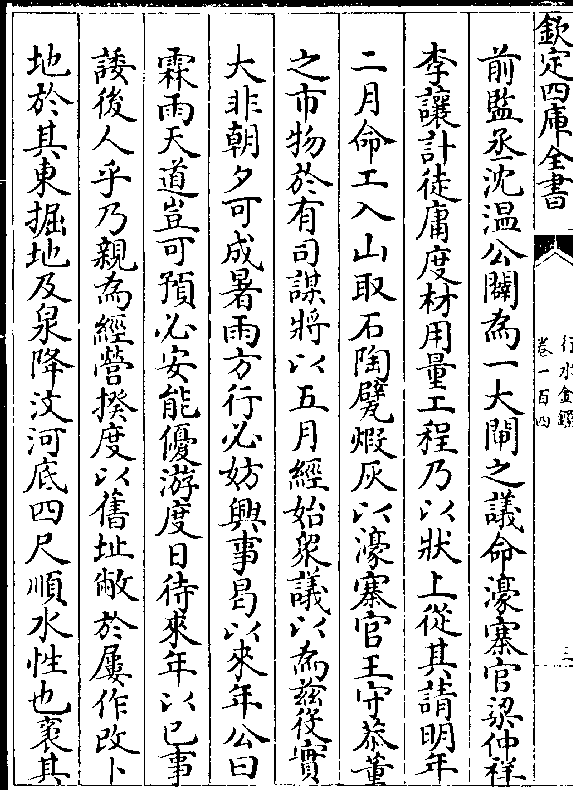 欽定四庫全書
行水金鑑
卷一百四
三
前監丞沈溫公闢為一大閘之議命濠寨官梁仲祥
李讓計徒庸度材用量工程乃以狀上從其請明年
二月命工入山取石陶甓煅灰以濠寨官王守恭董
之市物於有司謀將以五月經始衆議以為兹役實
大非朝夕可成暑雨方行必妨興事曷以來年公曰
霖雨天道豈可預必安能優游度日待來年以已事
諉後人乎乃親為經營揆度以舊址敝於屢作改卜
地於其東掘地及泉降汶河底四尺順水性也袤其